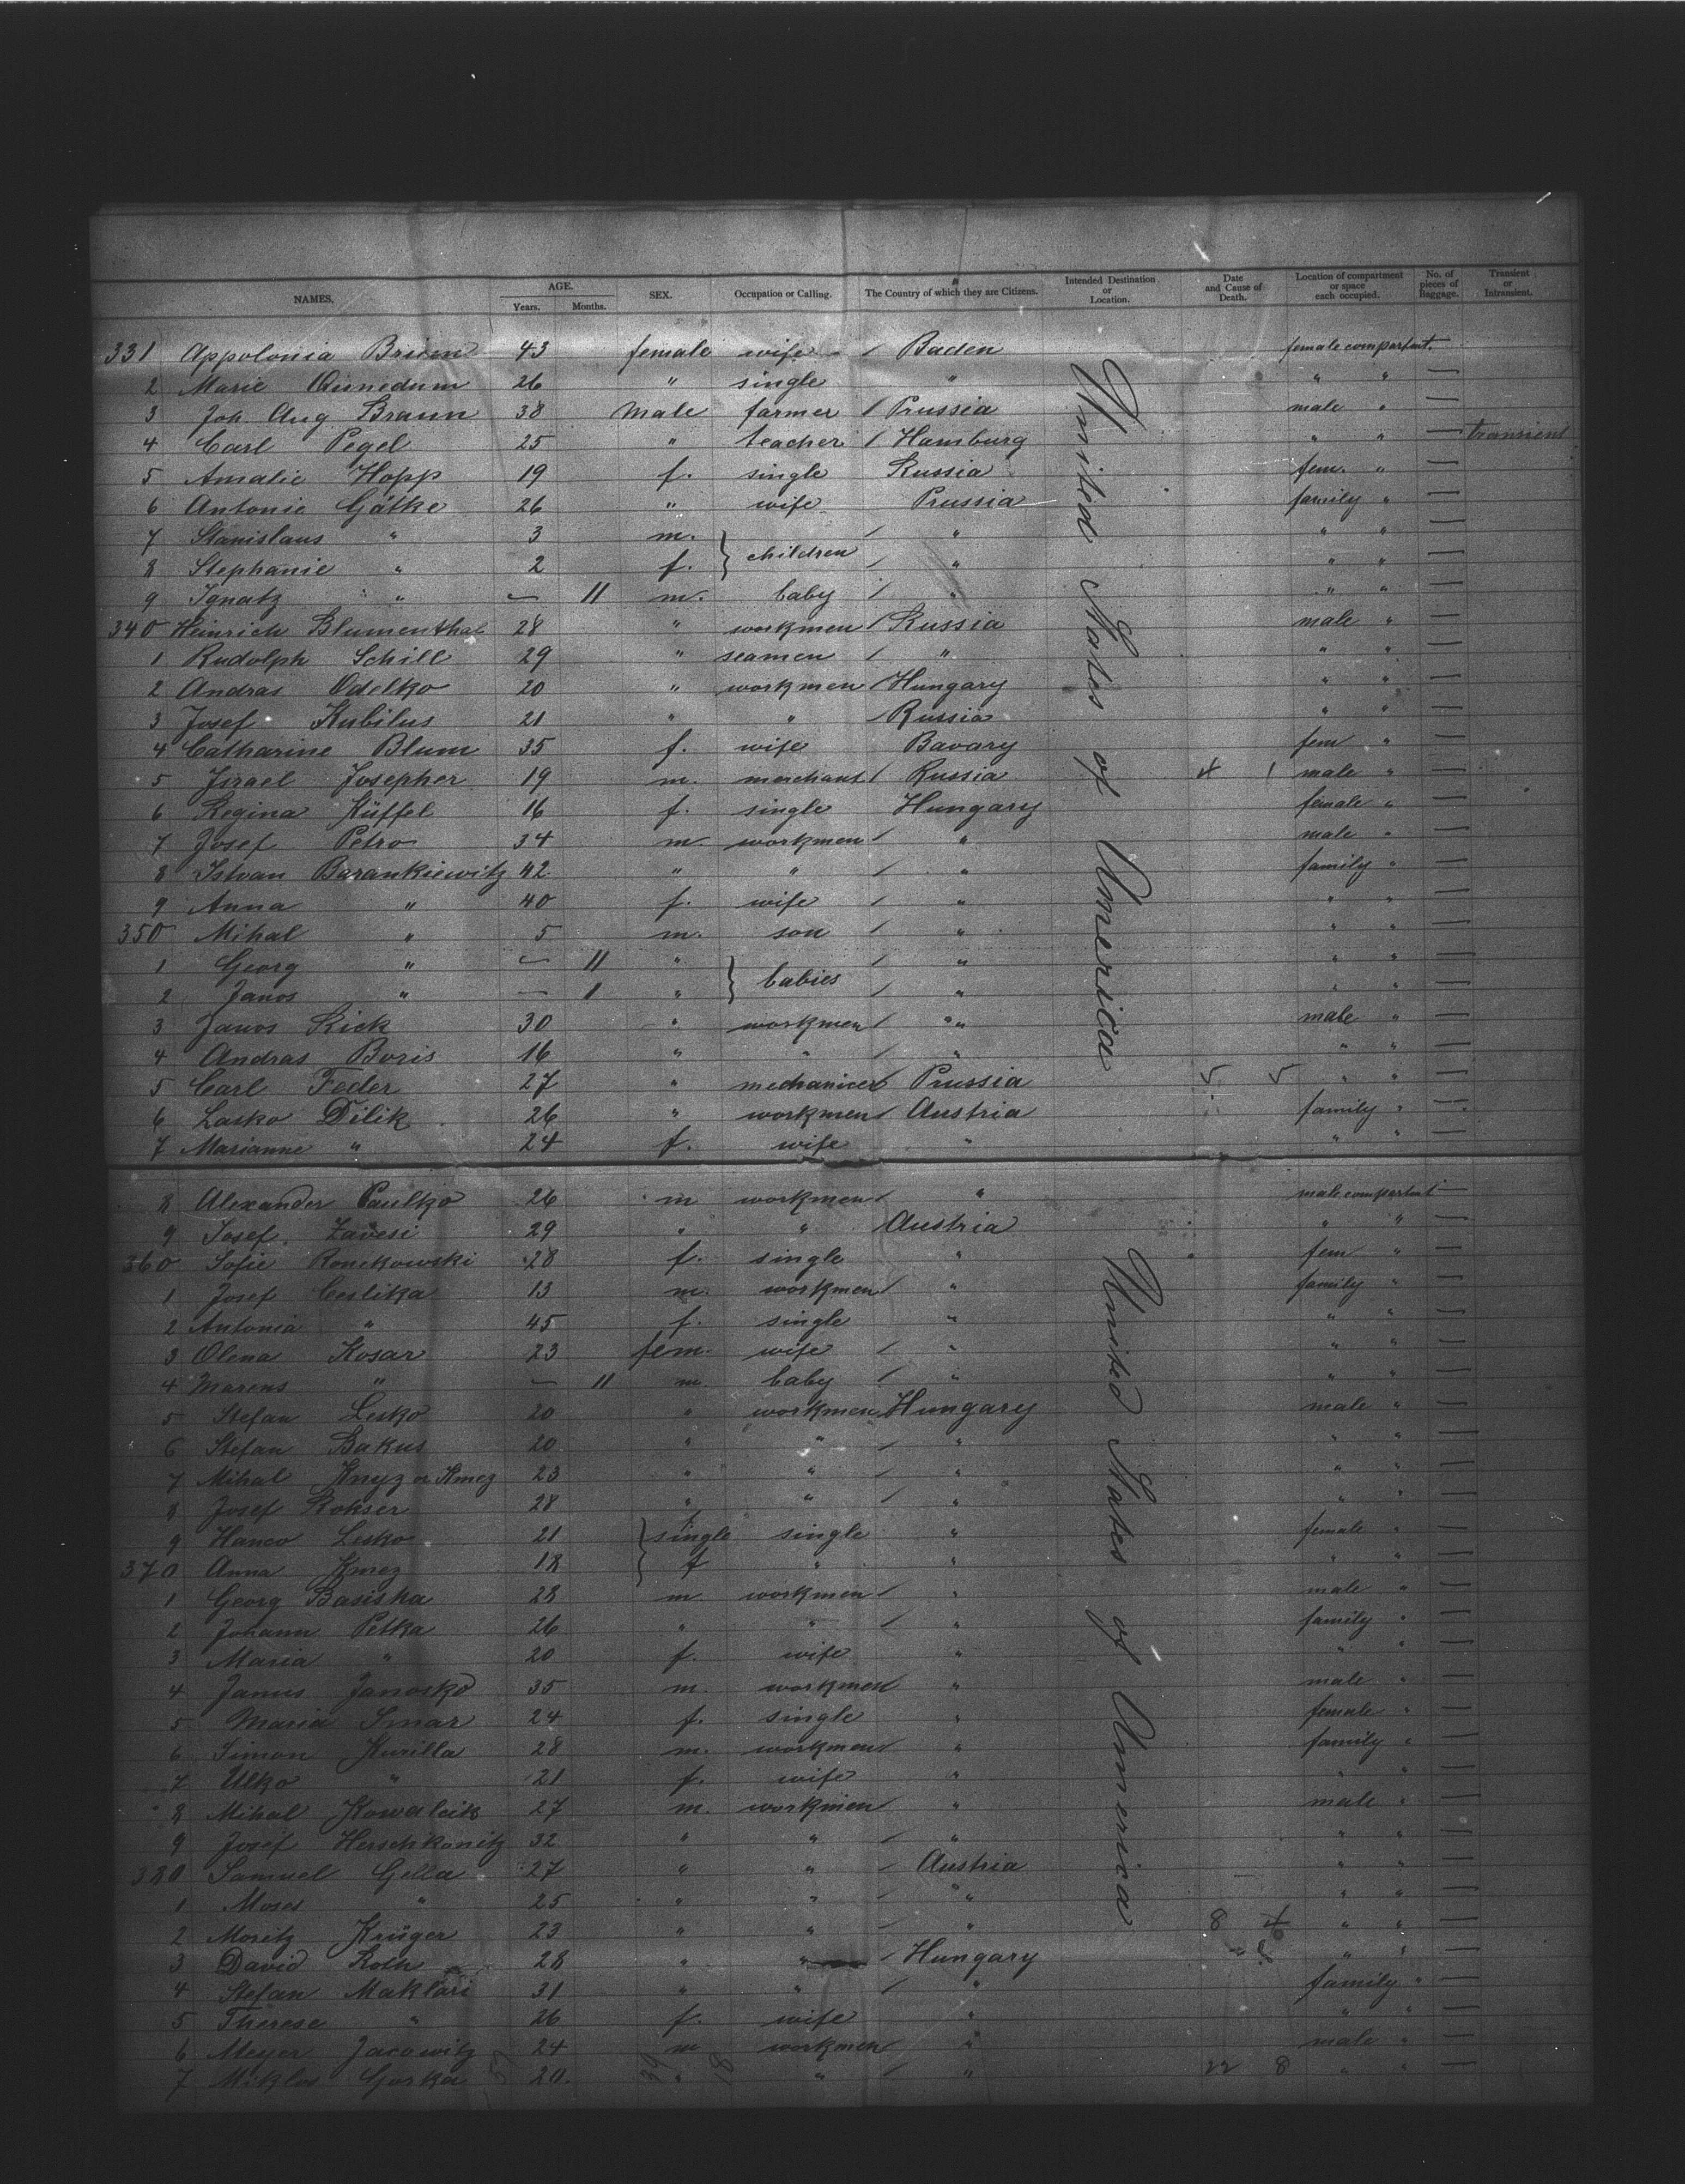 NAMES. AGE. Years. Months. SEX. Occupation or Calling. The Country of which they are Citizens. Intended Destination or Location. Date and Cause of Death. Location of compartment or space each occupied. No. of pieces of Baggage. Transient or Intransient.
331 Appolonia 43 female wife / Baden female compartent.
2 Marie 26 " single " " " —
3 Joh. Aug Braun 38 Male farmer / Prussia male " —
4 Carl Pegel 25 " teacher / Hamburg " " — transient
5 Amalie Hopp 19 f. single Russia fem. " —
6 Antonie Gätke 26 " wife Prussia family " —
7 Stanislaus " 3 m. } children / " " " —
8 Stephanie " 2 f. / " " " —
9 Ignatz " — 11 m. baby / " " " —
340 Heinrich Blumenthal 28 " workmen / Russia male " —
1 Rudolph Schill 29 " seamen / " " " —
2 Andras Odelko 20 " workmen / Hungary " " —
3 Josef Kubilus 21 " " / Russia " " —
4 Catharine Blum 35 f. wife Bavary fem " —
5 Israel Josepher 19 m. merchant / Russia 4 1 male " —
6 Regina Küffel 16 f. single Hungary female " —
7 Josef Petro 34 m. workmen / " male " —
8 Istvan Barankiewitz 42 " " / " family " —
9 Anna " 40 f. wife / " " " —
350 Mihal " 5 m. son / " " " —
1 Georg " — 11 " } babies / " " " —
2 Janos " — 1 " / " " " —
3 Janos Rick 30 " workmen / " male " —
4 Andras Boris 16 " " / " " " —
5 Carl Feder 27 " mechanicer / Prussia 5 5 " " —
6 Lasko Dilik 26 " workmen / Austria family " —
7 Marianne " 24 f. wife " " " —
United States of America
8 Alexander Paulko 26 m workmen / " male compartent —
9 Josef Zavesi 29 " " Austria " " —
360 Sofie Ronikowski 28 f. single " fem " —
1 Josef Ceslika 13 m. workmen / " family " —
2 Antonia " 45 f. single " " " —
3 Olena Kosar 23 fem. wife / " " " —
4 Marens " — 11 m baby / " " " —
5 Stefan Lesko 20 " workmen Hungary male " —
6 Stefan Bakus 20 " " / " " " —
7 Mihal Knyz or Kmez 23 " " / " " " —
8 Josef Rokser 28 " " / " " " —
9 Hanco Lesko 21 } single single " female " —
370 Anna Kmez 18 f " " " " —
1 Georg Basiska 28 m. workmen / " male " —
2 Johann Petka 26 " " / " family " —
3 Maria " 20 f. wife " " " —
4 Janus Janosko 35 m. workmen / " male " —
5 Maria Smar 24 f. single " female " —
6 Simon Kurilla 28 m. workmen / " family " —
7 Ulko " 21 f. wife " " " —
8 Mihal Kowalcik 27 m. workmen / " male " —
9 Josef Herschkowitz 32 " " / " " " —
380 Samuel Gella 27 " " / Austria " " —
1 Moses " 25 " " / " " " —
2 Moritz Krüger 23 " " / " 8 4 " " —
3 David Roth 28 " " / Hungary " " —
4 Stefan Maklari 31 " " / " family " —
5 Therese " 26 f. wife " " " —
6 Meyer Jacowitz 24 m workmen / " male " —
7 Miklos Gorka 20. " " / " 22 8 " " —
United States of America